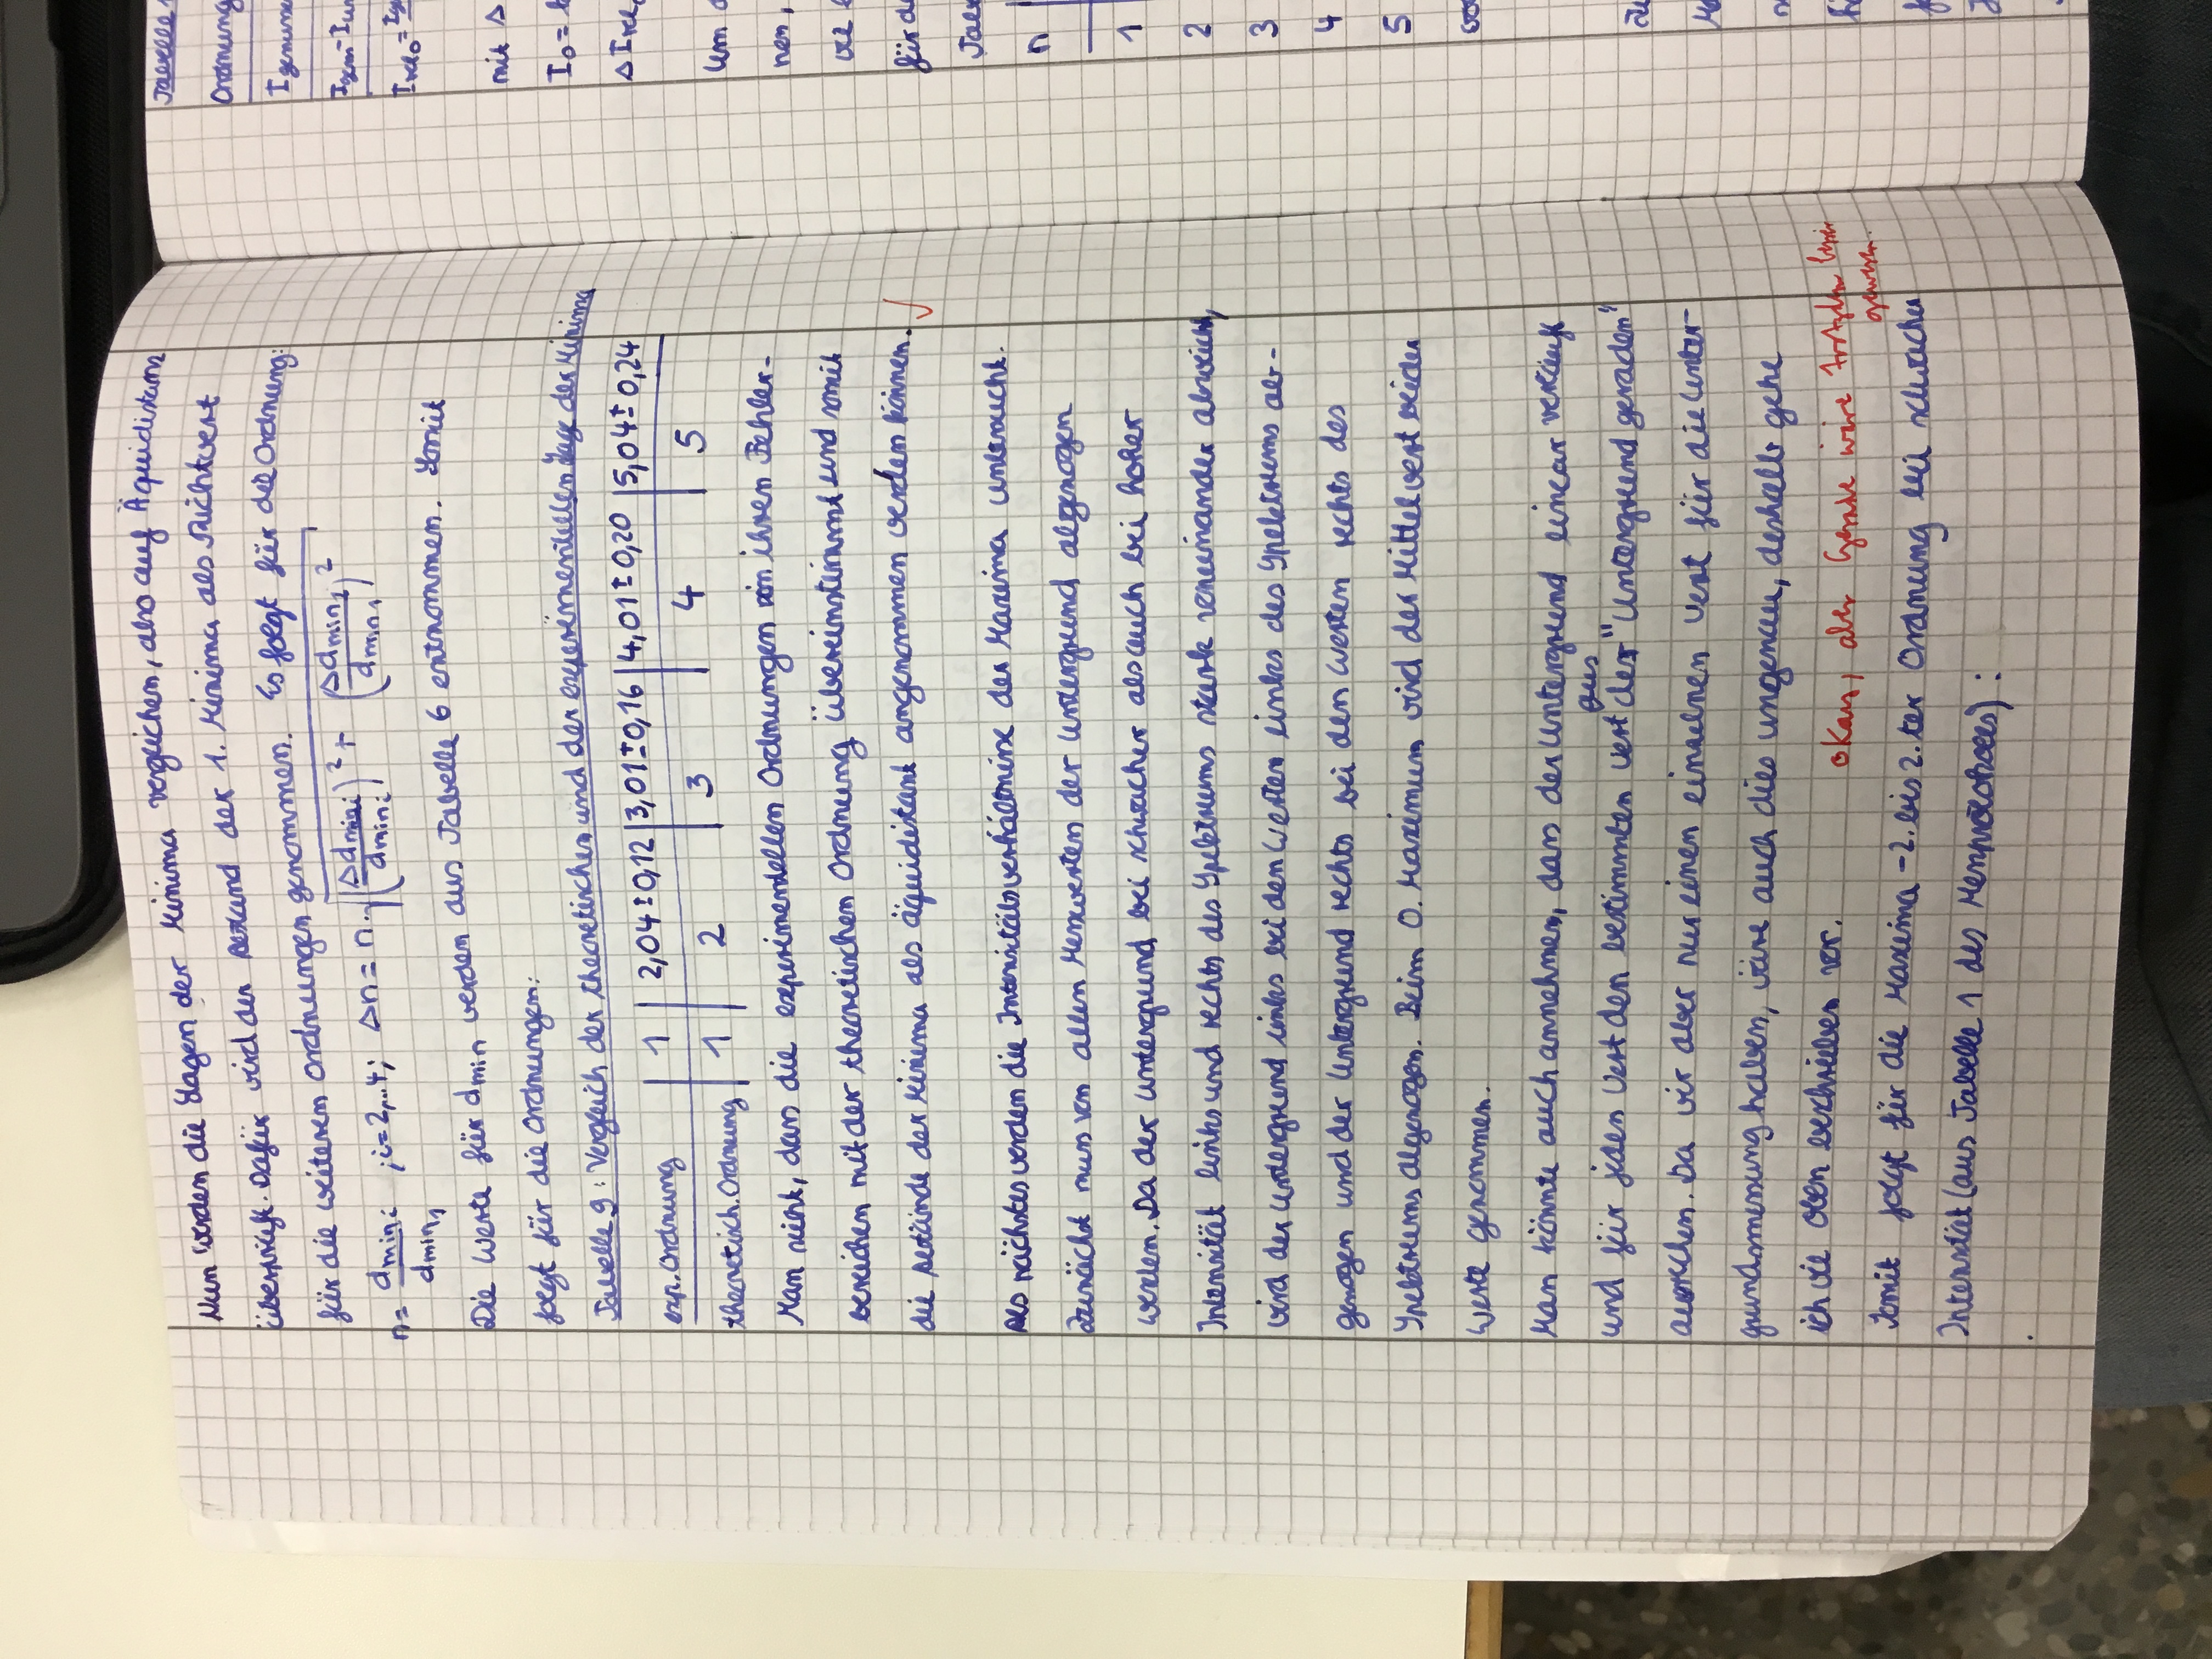 Nun werden die Lagen der Minima verglichen, also auf Äquidistanz
überprüft. Dafür wird der Abstand der 1. Minima als Richtwert
für die weiteren Ordnungen genommen. Es folgt für die Ordnung:
n = d_min_i / d_min_1 ; i=2,..4; Δn = n · √((Δd_min_i / d_min_i)² + (Δd_min_1 / d_min_1)²)
Die Werte für d_min werden aus Tabelle 6 entnommen. Somit
folgt für die Ordnungen:
Tabelle 9: Vergleich der theoretischen und der experimentellen Lage der Minima
exp. Ordnung | 1 | 2,04 ± 0,12 | 3,01 ± 0,16 | 4,01 ± 0,20 | 5,04 ± 0,24
theoretisch. Ordnung | 1 | 2 | 3 | 4 | 5
Man sieht, dass die experimentellen Ordnungen in ihren Fehler-
bereichen mit der theoretischen Ordnung übereinstimmt und somit
die Abstände der Minima als äquidistant angenommen werden können. ✓
Als nächstes werden die Intensitätsverhältnisse der Maxima untersucht.
Zunächst muss von allen Messwerten der Untergrund abgezogen
werden. Da der Untergrund bei schwacher als auch bei hoher
Intensität links und rechts des Spektrums stark voneinander abweicht,
wird der Untergrund links bei den Werten links des Spektrums ab-
gezogen und der Untergrund rechts bei den Werten rechts des
Spektrums abgezogen. Beim 0. Maximum wird der Mittelwert beider
Werte genommen.
Man könnte auch annehmen, dass der Untergrund linear verläuft
und für jeden Wert den bestimmten Wert aus der "Untergrund geraden"
ausrechen. Da wir aber nur einen einzelnen Wert für die Unter-
grundsmessung haben, wäre auch dies ungenau, deshalb gehe
ich wie oben beschrieben vor.
okay, aber Gerade wäre trotzdem besser
gewesen.
Somit folgt für die Maxima -2. bis 2. ter Ordnung bei schwacher
Intensität (aus Tabelle 1 des Messprotokolls):
Tabelle 1
Ordnung
I gemesse
I gem - I un
I rel 0 =
mit Δ
I₀ =
Δ I rel
Um
nen,
für d
n
1
2
3
4
5